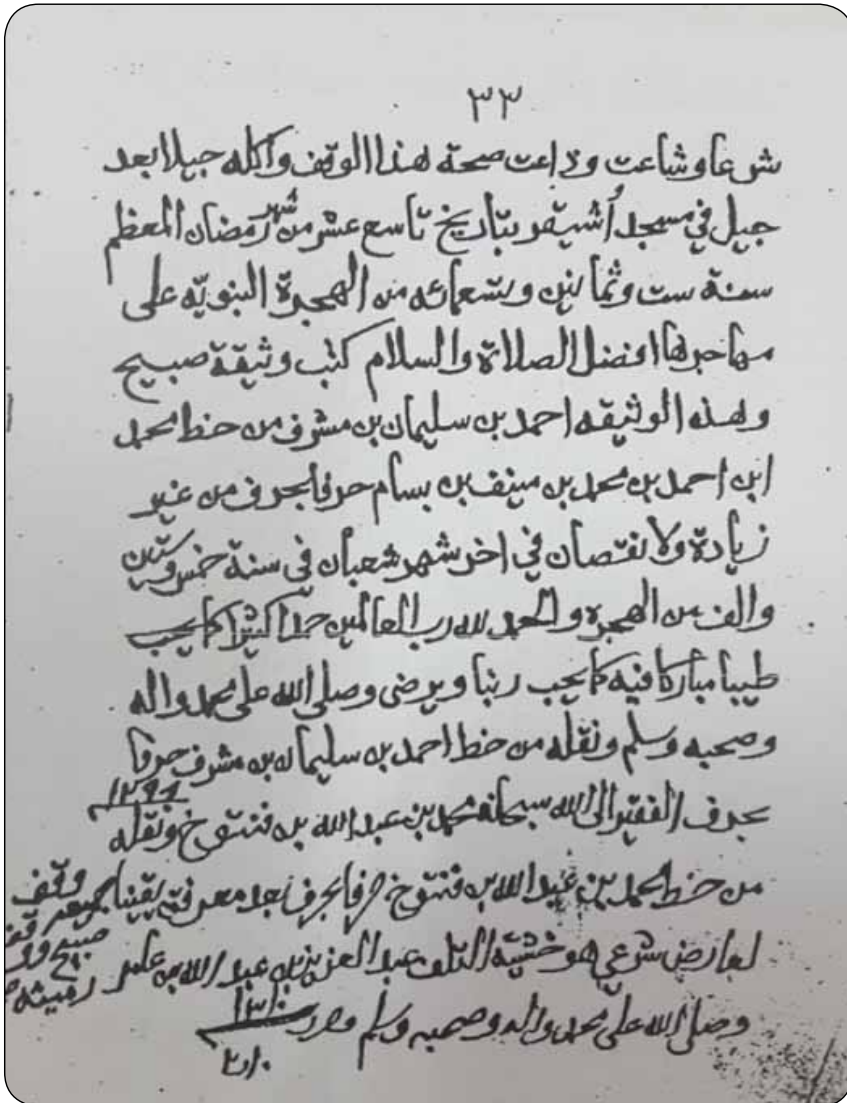 ٣٣
شرعا وشاعت وذاعت صحة هذا الوقف وأكله جيلا بعد
جيل في مسجد أشيقر بتاريخ تاسع عشر من شهر رمضان المعظم
سنة ست وثمانين وتسعمائه من الهجرة النبويّه على
مهاجرها افضل الصلاة والسلام كتب وثيقة صبيح
وهذه الوثيقه احمد بن سليمان بن مشرف من خط محمد
ابن احمد بن محمد بن منيف بن بسام حرفا بحرف من غير
زيادة ولا نقصان في اخر شهر شعبان في سنة خمس وستين
والف من الهجره والحمد لله رب العالمين حمدا كثيرا كما يحب
طيبا مباركا فيه كما يحب ربنا ويرضى وصلى الله على محمد واله
وصحبه وسلم ونقله من خط احمد بن سليمان بن مشرف حرفا
بحرف الفقير الى الله سبحانه محمد بن عبد الله بن فنتوخ ونقله
من خط محمد بن عبد الله بن فنتوخ حرفا بحرف بعد معرفته يقينا
لعارض شرعي هو خشية التلف عبد العزيز بن عبد الله بن عامر
وصلى الله على محمد واله وصحبه وسلم
وقف
صبيح
رميثه